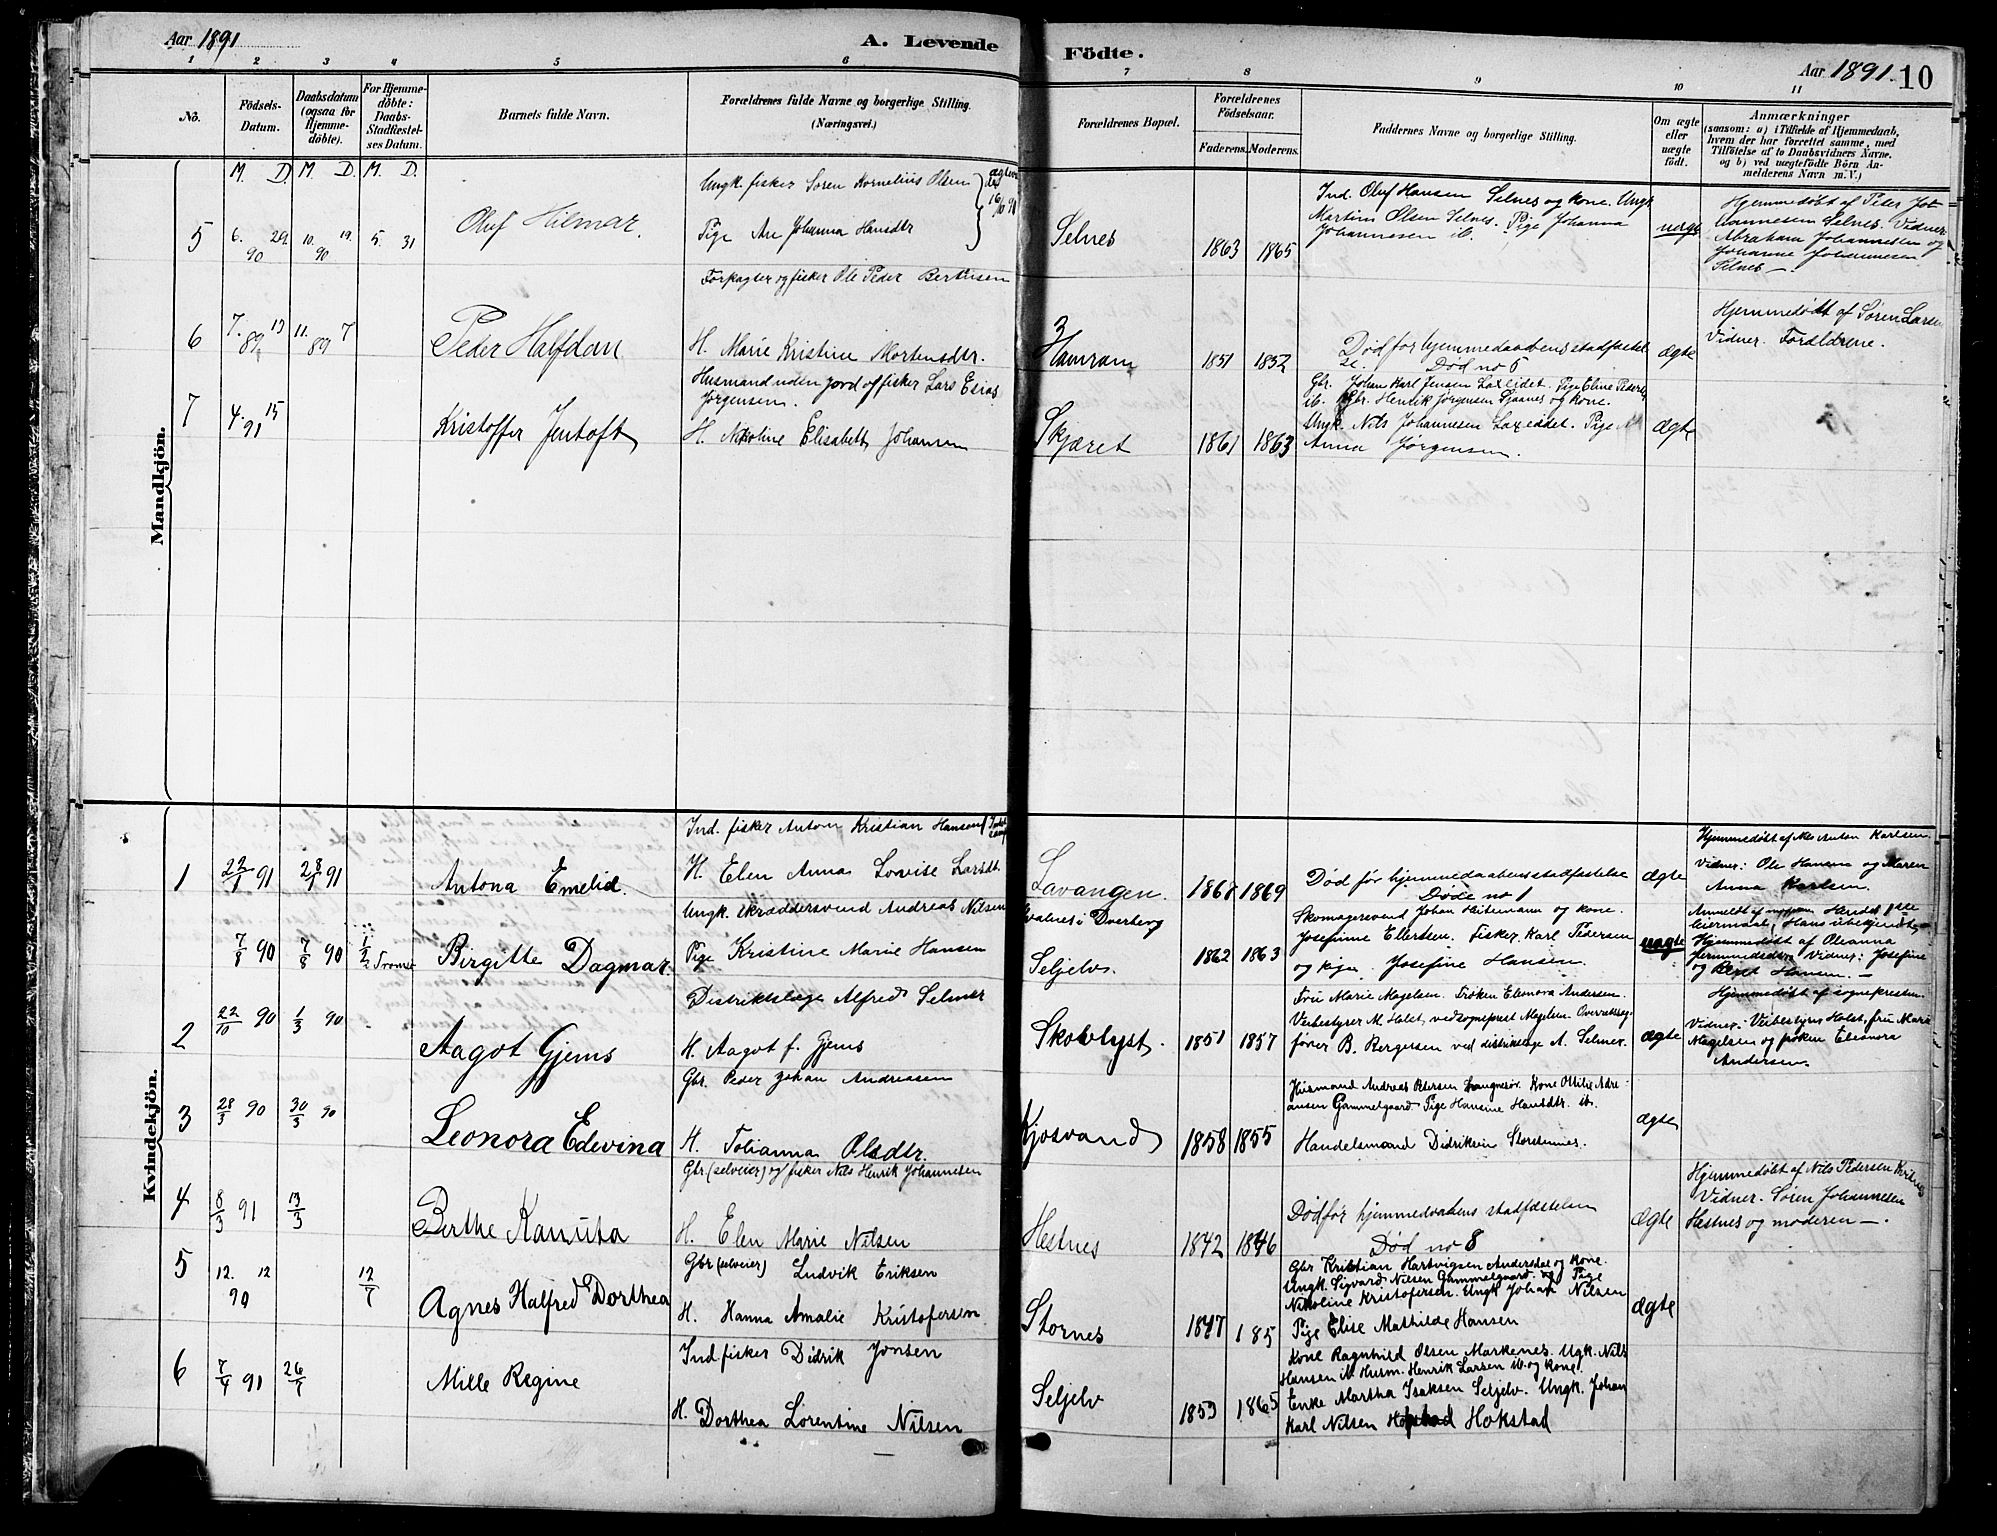 Aar 1891
A. Levende
Födte.
Aar 1891.
10
1
2
3
4
5
6
7
8
9
10
11
No.
Födsels-
Datum.
Daabsdatum
(ogsaa for
Hjemme-
döbte).
For Hjemme-
döbte:
Daabs-
Stadfæstel-
ses Datum.
Barnets fulde Navn.
Forældrenes fulde Navne og borgerlige Stilling.
(Næringsvei.)
Forældrenes Bopæl.
Forældrenes
Födselsaar.
Faderens.
Moderens.
Faddernes Navne og borgerlige Stilling.
Om ægte
eller
uægte
födt.
Anmærkninger
(saasom: a) i Tilfælde af Hjemmedaab,
hvem der har forrettet samme, med
Tilföielse af to Daabsvidners Navne.
og b) ved uægtefödte Börn An-
melderens Navn m. V.)
M. D. M. D. M. D.
Mandkjön.
5
6. 29.
90
10. 19.
90
5. 31
Oluf Hilmar.
Ungk. fisker Søren Kornelius Olsen
16/10 90
Pige Ane Johanna Hansdtr
Selnes
1863
1865
Ind. Oluf Hansen Selnes og kone. Ungk
Martin Olsen Selnes. Pige Johanna
Johannesen ib.
uægte
Hjemmedøbt af Peder Jo-
hannesen Selnes. Vidner
Abraham Johannesen og
Johanne Johannesen
Selnes —
6
7. 13
89
11. 7
89
Peder Halfdan
Forpagter og fisker Ole Peder Berthsen
H. Marie Kristine Mortensdtr.
3
Hamran
1851
1852
Død før hjemmedaabens stadfæstel-
se. Død no 5
ægte
Hjemmedøbt af Søren Larsen
Vidner. Forældrene.
7
4. 15
91
Kristoffer Jentoft
Husmand uden jord og fisker Lars Elias
Jørgensen.
H. Nikoline Elisabeth Johansen
Skjæret
1861
1863
Gbr. Johan Karl Jensen Laxeidet. Pige Eline Peders
ib. Gbr. Henrik Jørgensen Sjaanes og kone.
Ungk. Nils Johannesen Laxeidet. Pige
Anna Jørgensen.
ægte
Kvindekjön.
1
22/1 91
28/1 91
Antona Emelid.
Ind. fisker Anton Kristian Hansen
H. Elen Anna Lovise Larsdt.
Lavangen.
1868
1869
Død før hjemmedaabensstadfæstelse
Døde no 1
ægte
Hjemmedøbt af Nils Anton Karlsen
Vidner: Ole Hansen og Maren
Anna Karlsen.
7/8 90
7/8 90
1/2
Tromsø
Birgitte Dagmar.
Ungk. skræddersvend Andreas Nilsen
Pige Kristine Marie Hansen
i Dverberg
Seljelv.
1862
1863
Skomagersvend Johan Heitmann og kone
Josefinne Ellertsen. Fisker Karl Pedersen
og pige Josefine Hansen.
uægte
Anmeldt af
leiermaal, Hans ubekjendt
Hjemmedøbt af Oleanna
Vidner: Josefine
og Beret Hansen. —
2
22/10 90
1/3 90
Aagot Gjems
Distriktslæge Alfred Selmer
H. Aagot f. Gjems
Skovlyst.
1851
1857
Fru Marie Magelsen. Frøken Eleonora Andersen.
Veibestyrer M. Holst, ved sogneprest Magelsen. Overretssag-
fører B. Bergersen ved distriktslæge A. Selmer.
ægte
Hjemmedøbt af sognepresten.
Vidner: Veibestyrer Holst, fru Marie
Magelsen og frøken Eleonora
Andersen.
3
28/3 90
30/3 90
Leonora Edevina
Gbr. Peder Johan Andreasen
H. Johanna Olsdtr.
Kjosvand
1858
1855
Husmand Andreas Petersen Langnesør. Kone Ottilie Andre-
ansen Gammelgaard Pige Hansine Hansdtr. ib.
Handelsmand Didriksen Storstennes.
ægte
4
8/3 91
13/3
Berthe Kanuta
Gbr (selveier) og fisker Nils Henrik Johannesen
H. Elen Marie Nilsen
Hestnes
1842
1846
Død før hjemmedaabens stadfæstelsen
Død no 8
ægte
Hjemmedøbt af Nils Pedersen
Vidner. Søren Johannesen
Hestnes og moderen —.
5
12. 12
90
12/7
Agnes Halfred Dorthea
Gbr (selveier) Ludvik Eriksen
H. Hanna Amalie Kristofersen
Stornes
1847
185
Gbr Kristian Hartvigsen Andersdal og kone.
Ungk. Sigvard Nilsen Gammelgaard. og Pige
Nikoline Kristofersen. Ungk Johan Nilsen
Pige Elise Mathilde Hansen
ægte
6
7/4 91
26/7
Mille Regine
Ind fisker Didrik Jonsen
H. Dorthea Lorentine Nilsen
Seljelv
1853
1865
Kone Ragnhild Olsen Markenes. Ugk. Nils
Hansen N. Husm. Henrik Larsen ib og kone
Enke Martha Isaksen Seljelv. Ungk. Johan
Karl Nilsen Hokstad